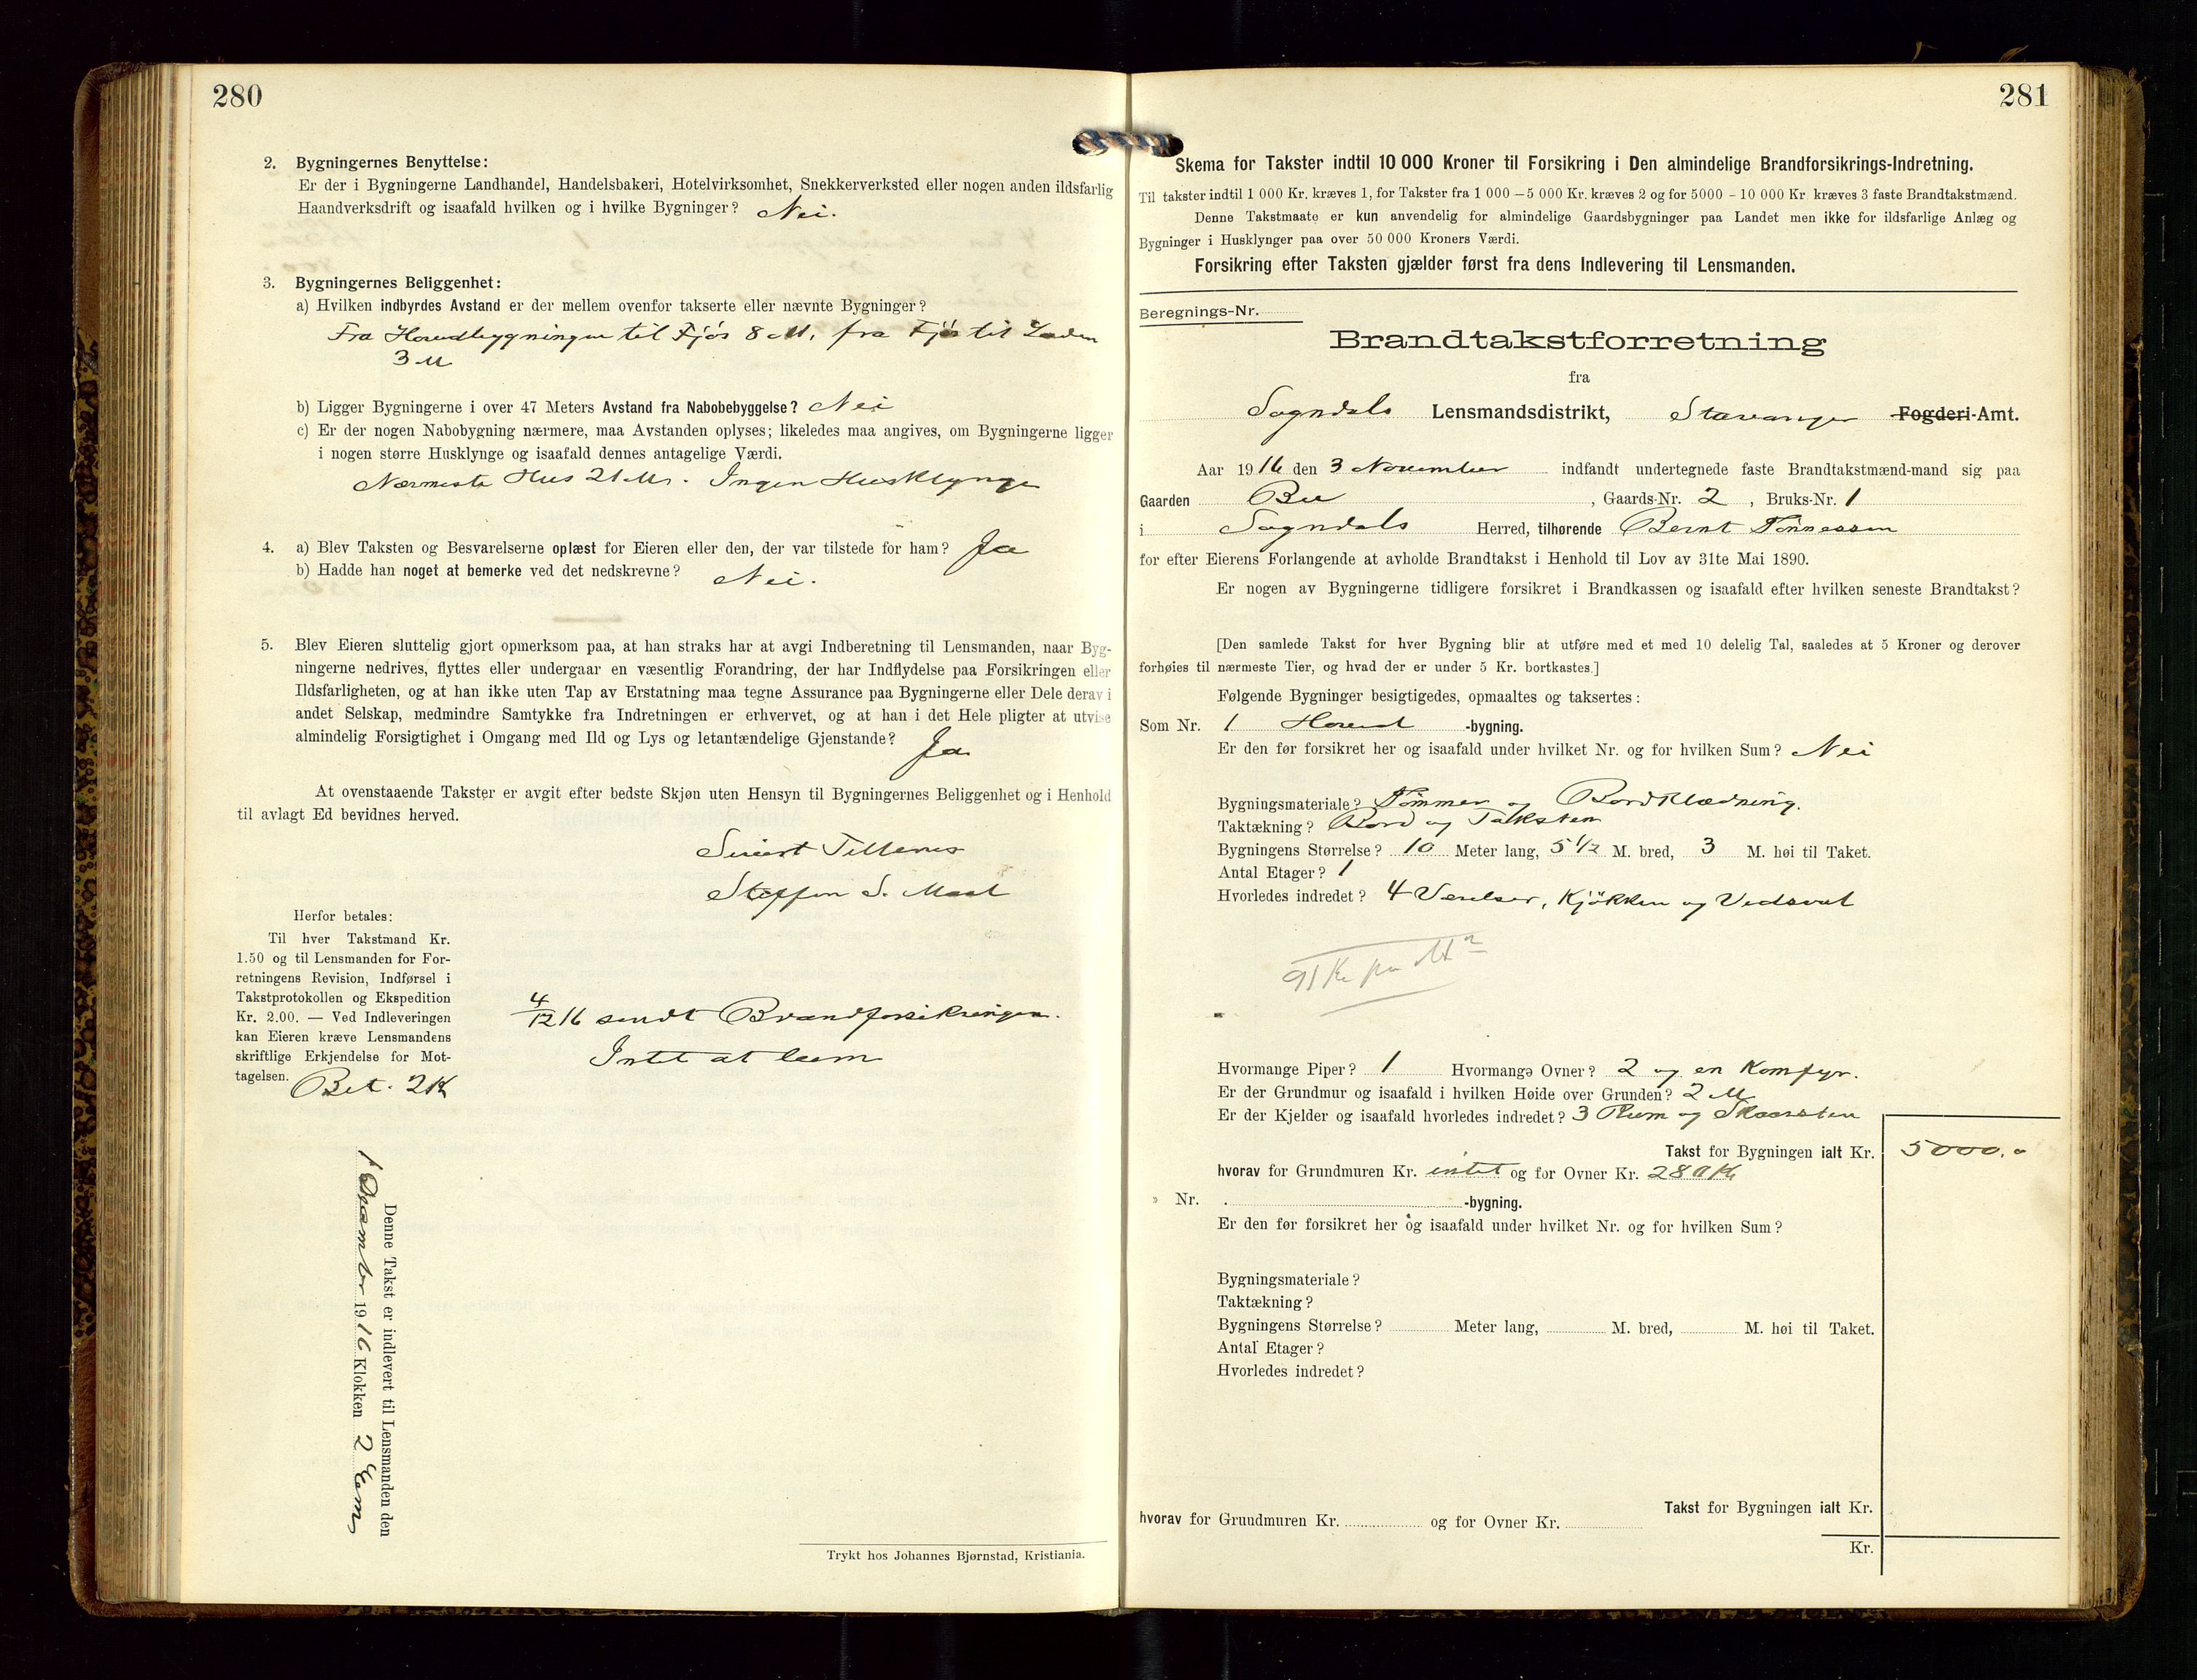 280
2. Bygningernes Benyttelse:
Er der i Bygningerne Landhandel, Handelsbakeri, Hotelvirksomhet, Snekkerverksted eller nogen anden ildsfarlig
Haandverksdrift og isaafald hvilken og i hvilke Bygninger? Nei.
3. Bygningernes Beliggenhet:
a) Hvilken indbyrdes Avstand er der mellem ovenfor takserte eller nævnte Bygninger?
Fra Hovedbygningen til Fjøs 8 M, fra Fjøs til Laden
3 M
b) Ligger Bygningerne i over 47 Meters Avstand fra Nabobebyggelse? Nei
c) Er der nogen Nabobygning nærmere, maa Avstanden oplyses; likeledes maa angives, om Bygningerne ligger
i nogen større Husklynge og isaafald dennes antagelige Værdi.
Nærmeste Hus 21 M. Ingen Husklynge
4. a) Blev Taksten og Besvarelserne oplæst for Eieren eller den, der var tilstede for ham? Ja
b) Hadde han noget at bemerke ved det nedskrevne? Nei.
5. Blev Eieren sluttelig gjort opmerksom paa, at han straks har at avgi Indberetning til Lensmanden, naar Byg-
ningerne nedrives, flyttes eller undergaar en væsentlig Forandring, der har Indflydelse paa Forsikringen eller
Ildsfarligheten, og at han ikke uten Tap av Erstatning maa tegne Assurance paa Bygningerne eller Dele derav i
andet Selskap, medmindre Samtykke fra Indretningen er erhvervet, og at han i det Hele pligter at utvise
almindelig Forsigtighet i Omgang med Ild og Lys og letantændelige Gjenstande? Ja
At ovenstaaende Takster er avgit efter bedste Skjøn uten Hensyn til Bygningernes Beliggenhet og i Henhold
til avlagt Ed bevidnes herved.
Sivert Tellenes
Steffen S.
Herfor betales:
Til hver Takstmand Kr.
1.50 og til Lensmanden for For-
retningens Revision, Indførsel i
Takstprotokollen og Ekspedition
Kr. 2.00. — Ved Indleveringen
kan Eieren kræve Lensmandens
skriftlige Erkjendelse for Mot-
tagelsen. Bet. 2 K
4/12 16 sendt Brandforsikringen.
Intet at
Denne Takst er indlevert til Lensmanden den
1 December 1916 Klokken 2 Em
Trykt hos Johannes Bjørnstad, Kristiania.
281
Skema for Takster indtil 10 000 Kroner til Forsikring i Den almindelige Brandforsikrings-Indretning.
Til takster indtil 1 000 Kr. kræves 1, for Takster fra 1 000 — 5 000 Kr. kræves 2 og for 5000 - 10 000 Kr kræves 3 faste Brandtakstmænd.
Denne Takstmaate er kun anvendelig for almindelige Gaardsbygninger paa Landet men ikke for ildsfarlige Anlæg og
Bygninger i Husklynger paa over 50 000 Kroners Værdi.
Forsikring efter Taksten gjælder først fra dens Indlevering til Lensmanden.
Beregnings-Nr.
Brandtakstforretning
fra
Sogndals Lensmandsdistrikt, Stavanger Fogderi-Amt.
Aar 1916 den 3 November indfandt undertegnede faste Brandtakstmænd-mand sig paa
Gaarden Bu, Gaards-Nr. 2, Bruks-Nr. 1
i Sogndals Herred, tilhørende Bernt Tønnessen
for efter Eierens Forlangende at avholde Brandtakst i Henhold til Lov av 31te Mai 1890.
Er nogen av Bygningerne tidligere forsikret i Brandkassen og isaafald efter hvilken seneste Brandtakst?
[Den samlede Takst for hver Bygning blir at utføre med et med 10 delelig Tal, saaledes at 5 Kroner og derover
forhøies til nærmeste Tier, og hvad der er under 5 Kr. bortkastes.]
Følgende Bygninger besigtigedes, opmaaltes og taksertes:
Som Nr. 1 Hoved -bygning.
Er den før forsikret her og isaafald under hvilket Nr. og for hvilken Sum? Nei
Bygningsmateriale? Tømmer og Bordklædning.
Taktækning? Bord og Taksten
Bygningens Størrelse? 10 Meter lang, 5 1/2 M. bred, 3 M. høi til Taket.
Antal Etager? 1
Hvorledes indredet? 4 Værelser, Kjøkken og Vedsval
91 Kr pr M²
Hvormange Piper? 1 Hvormange Ovner? 2 og en Komfyr.
Er der Grundmur og isaafald i hvilken Høide over Grunden? 2 M
Er der Kjelder og isaafald hvorledes indredet? 3 Rum og
Takst for Bygningen ialt Kr. 5000.0
hvorav for Grundmuren Kr. intet og for Ovner Kr. 280 Kr
» Nr. -bygning.
Er den før forsikret her og isaafald under hvilket Nr. og for hvilken Sum?
Bygningsmateriale?
Taktækning?
Bygningens Størrelse? Meter lang, M. bred, M. høi til Taket.
Antal Etager?
Hvorledes indredet?
Takst for Bygningen ialt Kr.
hvorav for Grundmuren Kr. og for Ovner Kr.
Kr.